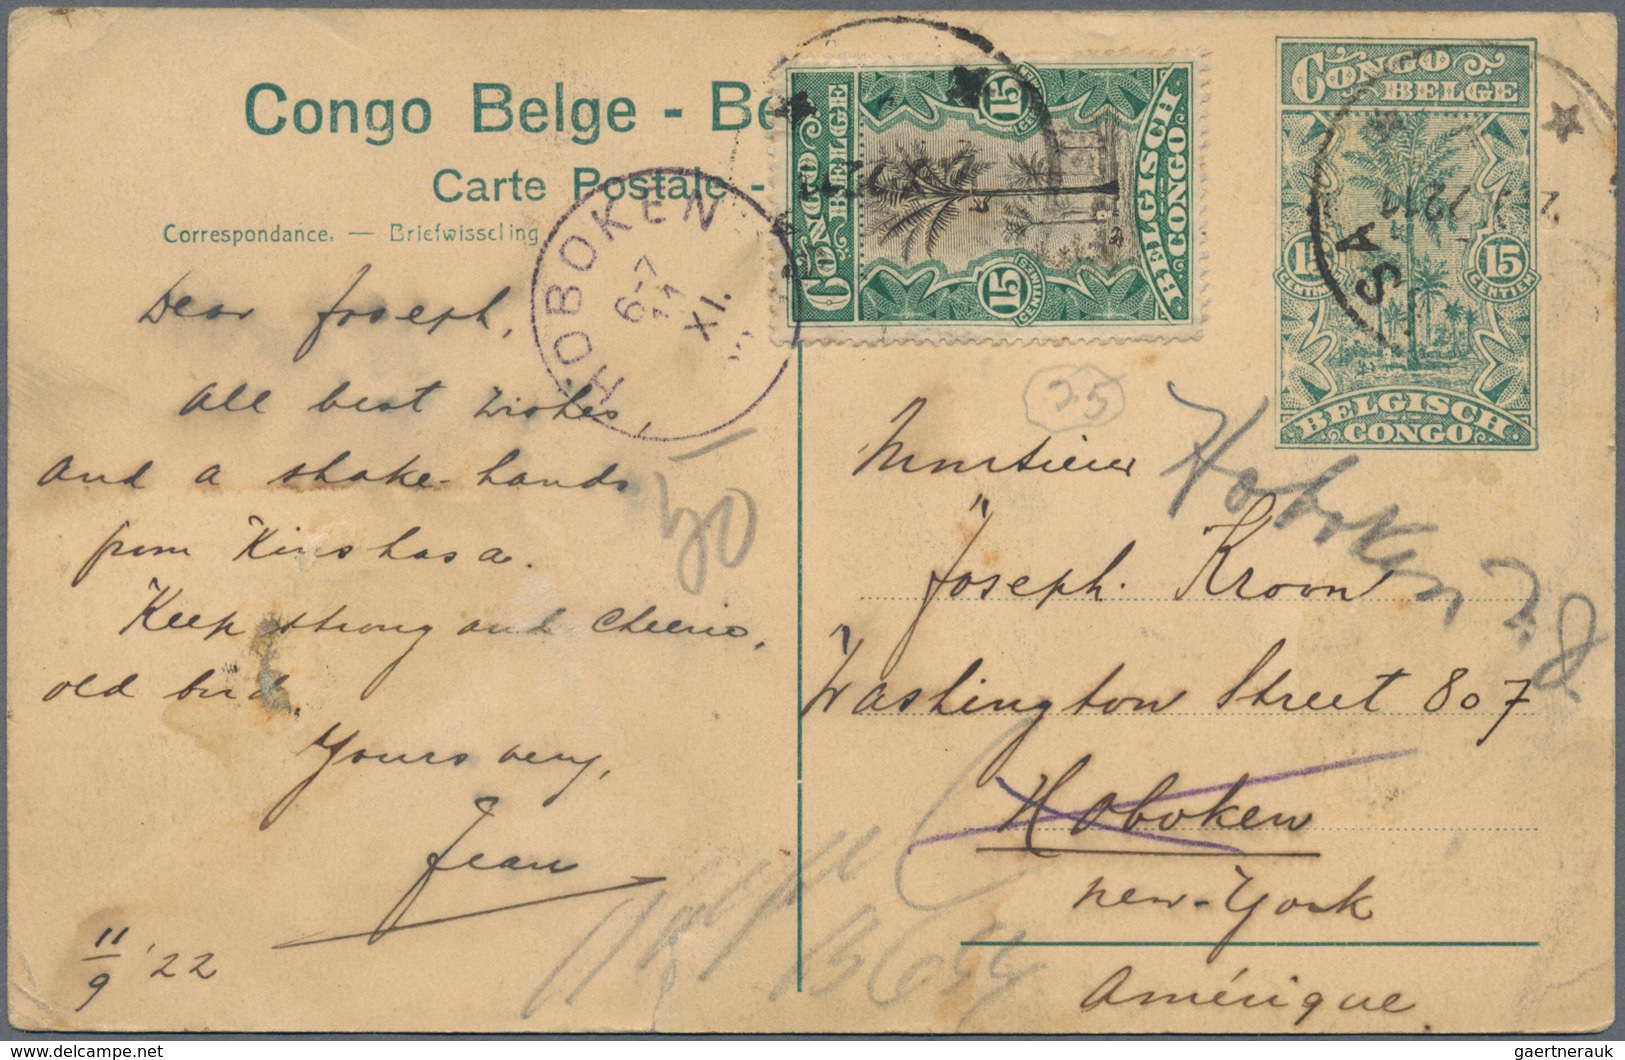 Congo Belge - Be
Carte Postale -
Correspondance. — Briefwisseling
Dear Joseph,
All best wishes,
and a shake-hands
from Kinshasa.
Keep strong and cheerio,
old bird.
Yours very,
Jean
11/9 '22
HOBOKEN
6-7
11
XI.
CONGO
BELGE
15
CENTIMES
15
CENTIEM
BELGISCH
CONGO
CONGO
BELGE
15
CENTIMES
15
CENTIEM
BELGISCH
CONGO
25
30
Monsieur
Joseph Kroon
Washington Street 807
Hoboken
New-York
Amérique.
Hoboken
delcampe.net
gaertnerauk